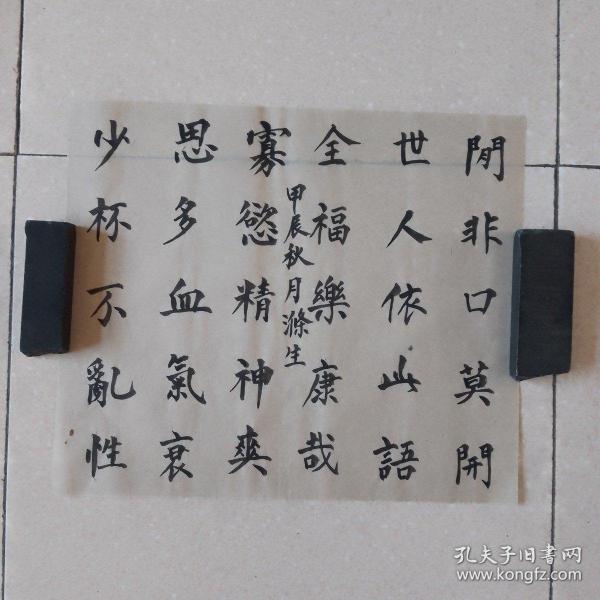 閒非口莫開
世人依此語
全福樂康哉
甲辰秋月滌生
寡慾精神爽
思多血氣衰
少杯不亂性
孔夫子旧书网
www.kongfz.com